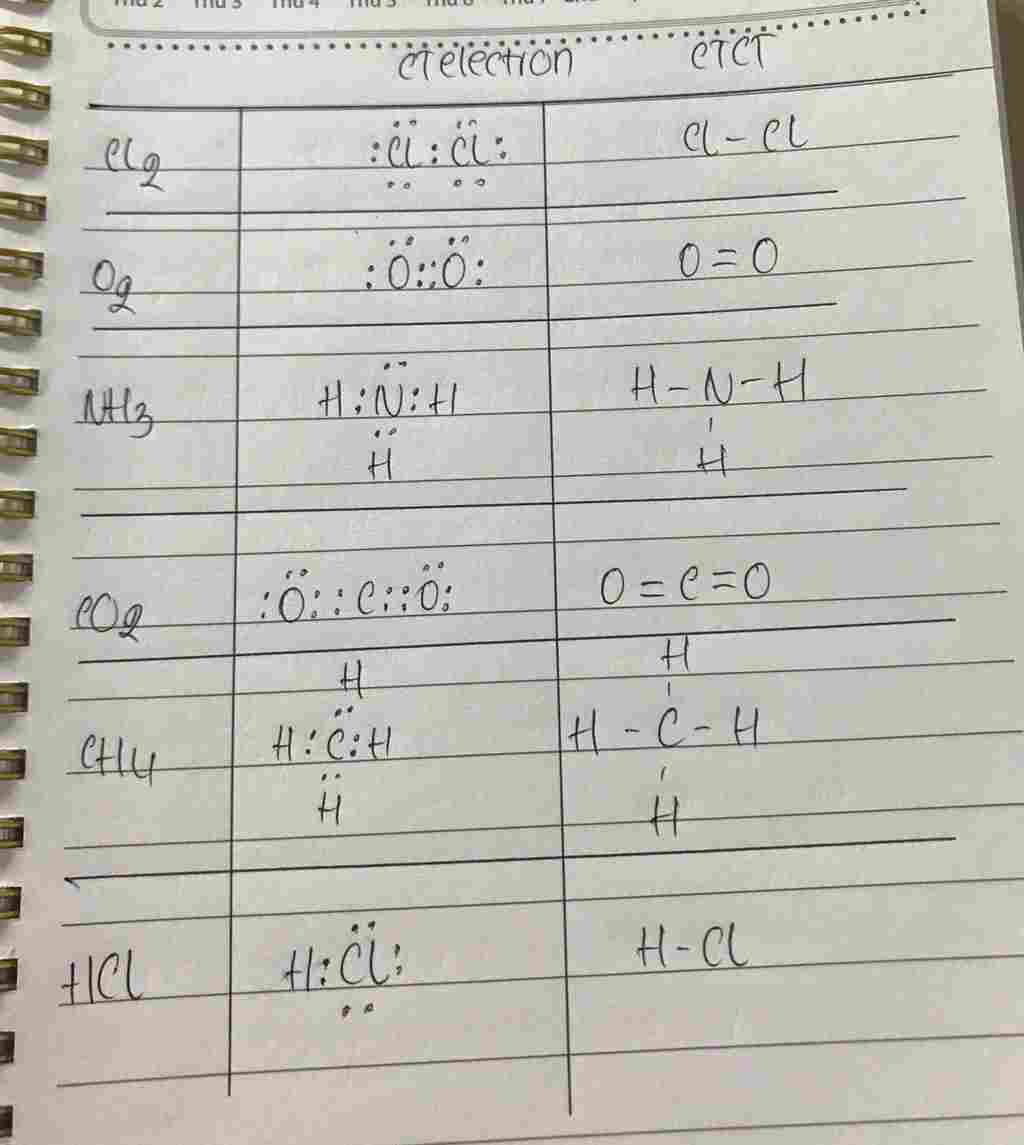 CT election CTCT
Cl2 :Cl:Cl: Cl - Cl
O2 :O::O: O = O
NH3 H:N:H H - N - H
H H
CO2 :O::C::O: O = C = O
H H
CH4 H:C:H H - C - H
H H
HCl H:Cl: H - Cl